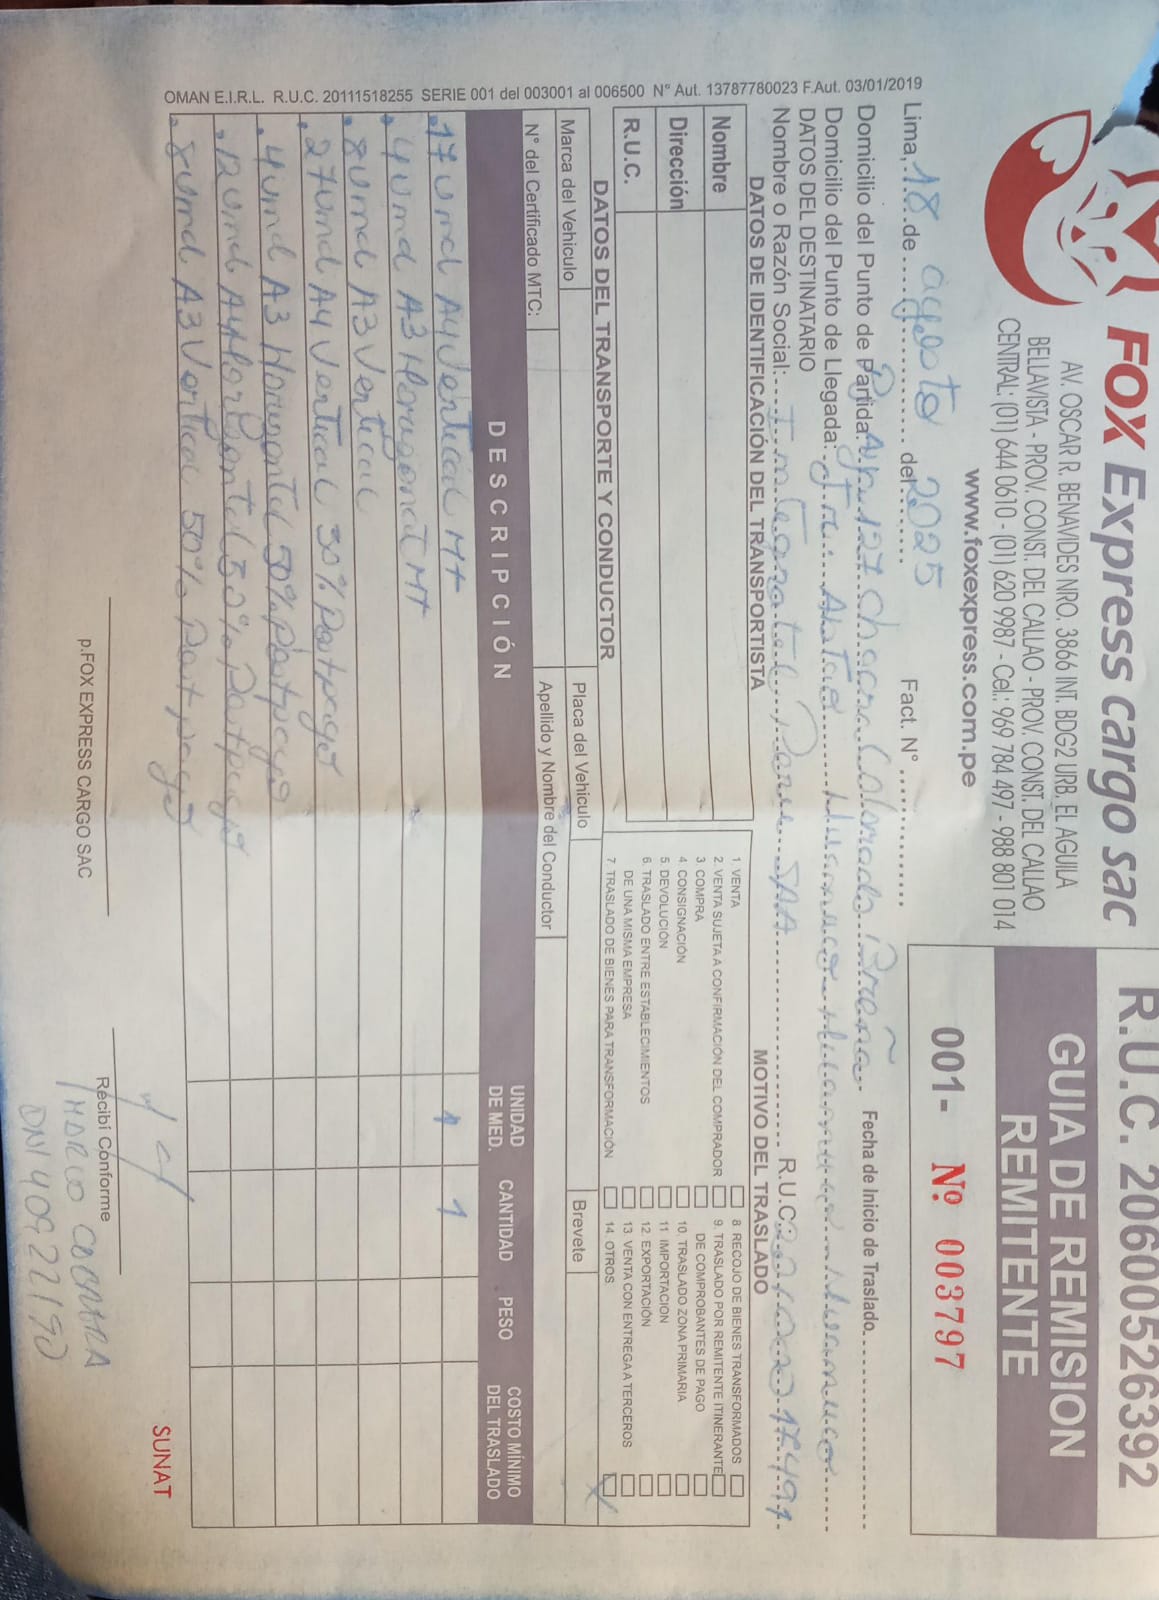 FOX Express cargo sac
AV. OSCAR R. BENAVIDES NRO. 3866 INT. BDG2 URB. EL AGUILA
BELLAVISTA - PROV. CONST. DEL CALLAO - PROV. CONST. DEL CALLAO
CENTRAL: (01) 644 0610 - (01) 620 9987 - Cel.: 969 784 497 - 988 801 014
www.foxexpress.com.pe
R.U.C. 20600526392
GUIA DE REMISION
REMITENTE
001- Nº 003797
Lima, 18 de agosto del 2025 Fact. N°
Domicilio del Punto de Partida: 127 Chacra Colorada Breña Fecha de Inicio de Traslado
Domicilio del Punto de Llegada: Huanuco Huanuco
DATOS DEL DESTINATARIO
Nombre o Razón Social: Integratel Peru SAA R.U.C.:
DATOS DE IDENTIFICACIÓN DEL TRANSPORTISTA
Nombre
Dirección
R.U.C.
MOTIVO DEL TRASLADO
1 VENTA
2. VENTA SUJETA A CONFIRMACIÓN DEL COMPRADOR
3 COMPRA
4. CONSIGNACIÓN
5. DEVOLUCIÓN
6. TRASLADO ENTRE ESTABLECIMIENTOS
DE UNA MISMA EMPRESA
7 TRASLADO DE BIENES PARA TRANSFORMACIÓN
8 RECOJO DE BIENES TRANSFORMADOS
9. TRASLADO POR REMITENTE ITINERANTE
DE COMPROBANTES DE PAGO
10. TRASLADO ZONA PRIMARIA
11 IMPORTACION
12. EXPORTACIÓN
13. VENTA CON ENTREGA A TERCEROS
14. OTROS X
DATOS DEL TRANSPORTE Y CONDUCTOR
Marca del Vehiculo Placa del Vehiculo Brevete
N° del Certificado MTC: Apellido y Nombre del Conductor
DESCRIPCIÓN UNIDAD DE MED. CANTIDAD PESO COSTO MÍNIMO DEL TRASLADO
. 17 und A4 Vertical MT 1 1
. 4 und A3 Horizontal MT
. 8 und A3 Vertical
. 27 und A4 Vertical 50% Postpago
. 4 und A3 Horizontal 50% Postpago
. 12 und A4 Horizontal 50% Postpago
. 8 und A3 Vertical 50% Postpago
OMAN E.I.R.L. R.U.C. 20111518255 SERIE 001 del 003001 al 006500 N° Aut. 13787780023 F.Aut. 03/01/2019
p.FOX EXPRESS CARGO SAC
Recibí Conforme
DNI 40922190
SUNAT